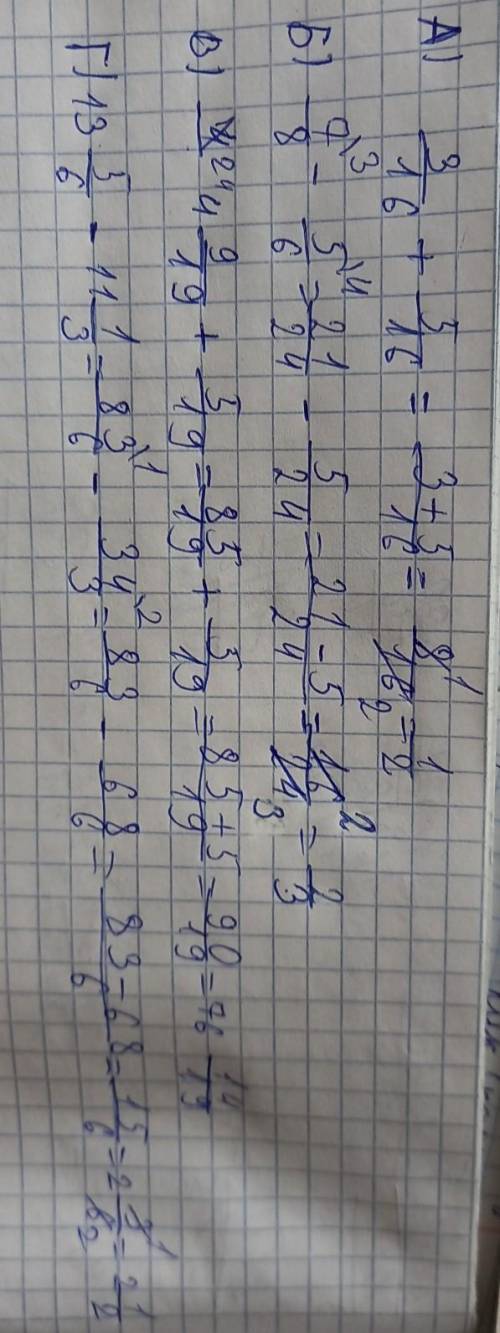 А) 3/16 + 5/16 = 3+5/16 = 8¹/16₂ = 1/2
Б) 7\3/8 - 5\4/6 = 21/24 - 5/24 = 21-5/24 = 16²/24₃ = 2/3
В) 4 9/19 + 5/19 = 85/19 + 5/19 = 85+5/19 = 90/19 = 76 14/19
Г) 13 5/6 - 11 1/3 = 83\1/6 - 34\2/3 = 83/6 - 68/6 = 83-68/6 = 15/6 = 2 3¹/6₂ = 2 1/2